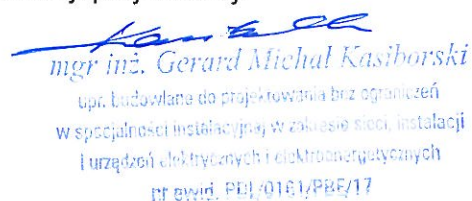 mgr inż. Gerard Michał Kasiborski
upr. budowlane do projektowania bez ograniczeń
w specjalności instalacyjnej w zakresie sieci, instalacji
i urządzeń elektrycznych i elektroenergetycznych
nr ewid. PDL/0161/PBE/17